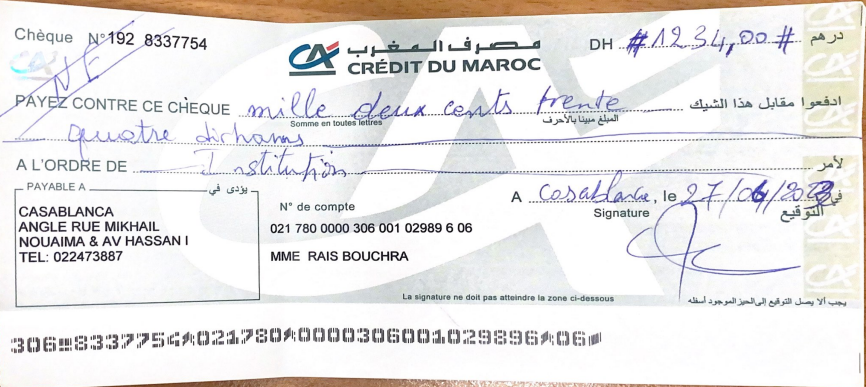 Chèque N°192 8337754
N E
CA مصرف المغرب
CRÉDIT DU MAROC
DH #1234,00# درهم
PAYEZ CONTRE CE CHEQUE mille deux cents trente ادفعوا مقابل هذا الشيك
Somme en toutes lettres المبلغ مبينا بالأحرف
quatre dirhams
A L'ORDRE DE Institution لأمر
PAYABLE A يؤدى في
CASABLANCA
ANGLE RUE MIKHAIL
NOUAIMA & AV HASSAN I
TEL: 022473887
N° de compte
021 780 0000 306 001 02989 6 06
MME RAIS BOUCHRA
A Casablanca, le 27/04/2023 في
Signature التوقيع
La signature ne doit pas atteindre la zone ci-dessous يجب ألا يصل التوقيع إلى الحيز الموجود أسفله
306 8337754 021780 0000306001029896 06